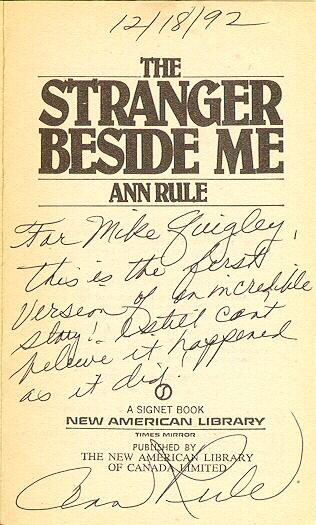 12/18/92
THE
STRANGER
BESIDE ME
ANN RULE
For Mike Quigley,
this is the first
Version of an incredible
story! I still can't
beleive it happened
as it did.
S
A SIGNET BOOK
NEW AMERICAN LIBRARY
TIMES MIRROR
PUBLISHED BY
THE NEW AMERICAN LIBRARY
OF CANADA LIMITED
Ann Rule